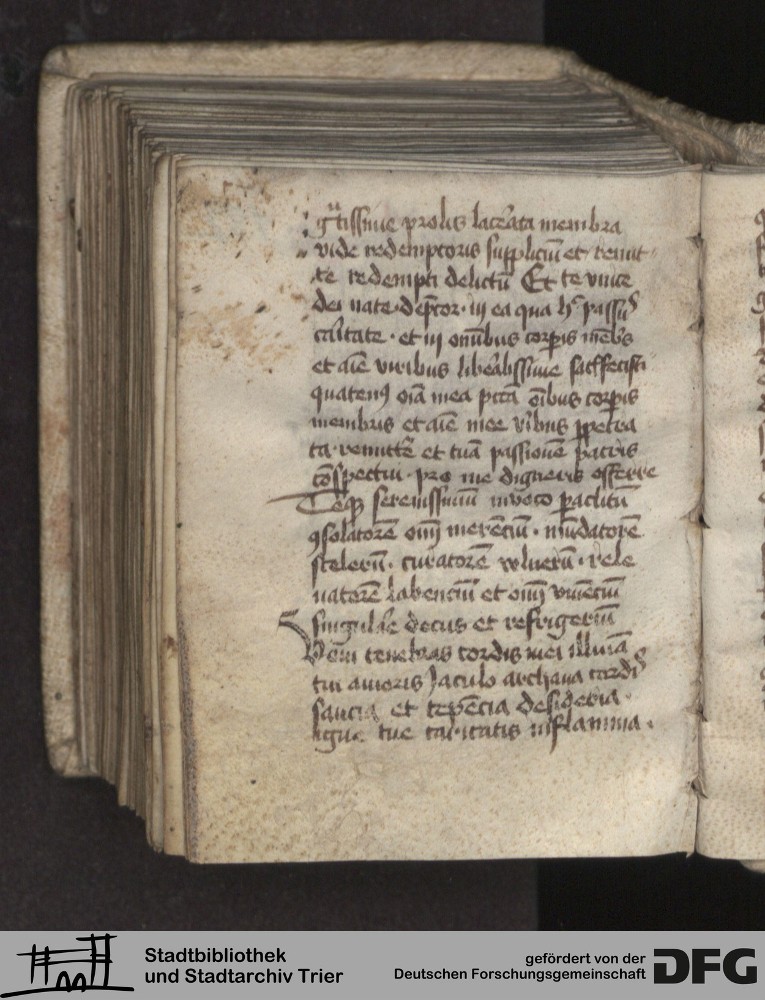 gᵃtissime prolis lac̾ata membra
vide redemptoris suppliciū et remit
te redempti delictū Et te vnice
dei nate dep̄cor · in ea qua h̄ passꝰ
caritate · et in om̄ibus corꝑis mēbris
et aīe viribus lib̾alissime satffecisti
quatenꝰ oīa mea pctā oībus corꝑis
membris et aīe mee viribus ꝑpetra
ta remitte et tuā passionē patris
cōspectui · pro me digneris offerre
Teqꝫ serenissimū invoco paclitū
ꝯsolatorē om̄ merenciū · mūdatorē
scelerū · curatorē vulnerū · rele
uatorē labenciū et om̄ viuenciū
singulare decus et refrigeriū
Veni tenebras cordis mei illuīa
tui amoris Jaculo archana cordis
saucia et tepēcia desideria ·
igne tue caritatis inflamma ·
Stadtbibliothek
und Stadtarchiv Trier
gefördert von der
Deutschen Forschungsgemeinschaft
DFG